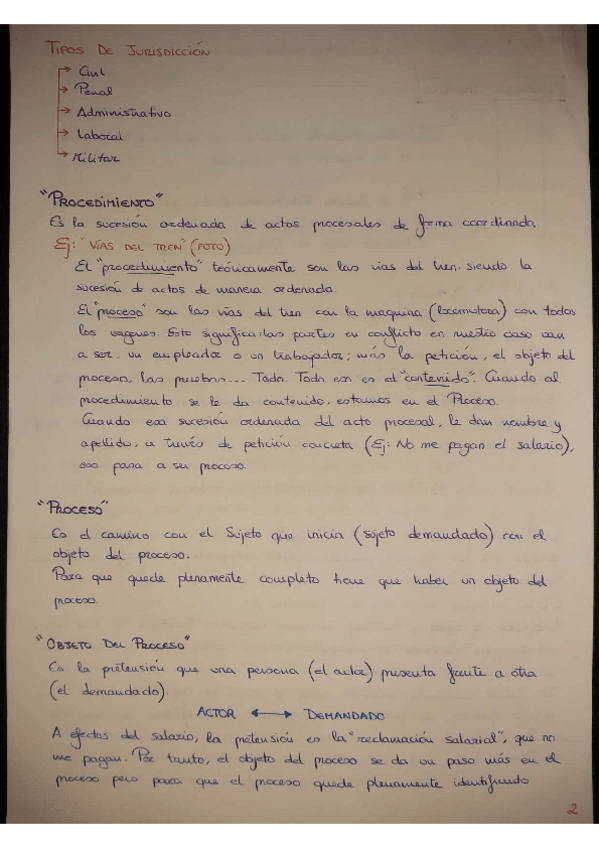 TIPOS DE JURISDICCIÓN
Civil
Penal
Administrativo
Laboral
Militar
"PROCEDIMIENTO"
Es la sucesión ordenada de actos procesales de forma coordinada.
Ej: "VÍAS DEL TREN" (FOTO)
El "procedimiento" teóricamente son las vías del tren, siendo la
sucesión de actos de manera ordenada.
El "proceso" son las vías del tren con la maquina (locomotora) con todos
los vagones. Esto significa: las partes en conflicto en nuestro caso van
a ser, un empleador o un trabajador; más la petición, el objeto del
proceso, las pruebas... Todo. Todo eso es el "contenido". Cuando al
procedimiento se le da contenido, estamos en el Proceso.
Cuando esa sucesión ordenada del acto procesal, le dan nombre y
apellido, a través de petición concreta (Ej: No me pagan el salario),
eso pasa a ser proceso.
"PROCESO"
Es el camino con el Sujeto que inicia (sujeto demandado) con el
objeto del proceso.
Para que quede plenamente completo tiene que haber un objeto del
proceso.
"OBJETO DEL PROCESO"
Es la pretensión que una persona (el actor) presenta frente a otra
(el demandado).
ACTOR ↔ DEMANDADO
A efectos del salario, la pretensión es la "reclamación salarial", que no
me pagan. Por tanto, el objeto del proceso se da un paso más en el
proceso pero para que el proceso quede plenamente identificado
2